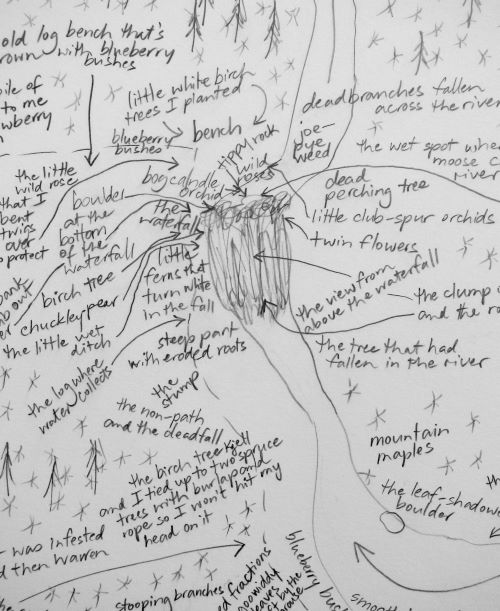 old log bench that's
rown with blueberry
bushes
pile of
to me
wberry
little white birch
trees I planted
blueberry
bushes
bench
tippy rock
wild
roses
joe-
pye
weed
dead branches fallen
across the river
the wet spot where
moose c
river
the little
wild rose
that I
bent
twigs
over
to protect
bog candle
orchid
boulder
at the
bottom
of the
waterfall
the
waterfall
dead
perching tree
little club-spur orchids
twin flowers
bank
birch tree
chuckleypear
the little wet
ditch
little
ferns that
turn white
in the fall
the view from
above the waterfall
the clump o
and the ro
the log where
water collects
steep part
with eroded roots
the tree that had
fallen in the river
the
stump
the non-path
and the deadfall
mountain
maples
the birch tree Kjell
and I tied up to two spruce
trees with burlap and
rope so I won't hit my
head on it
th
the leaf-shadowe
boulder
was infested
d then Warren
stooping branches
ed fractions
leaves
t by the
blueberry bus
smooth